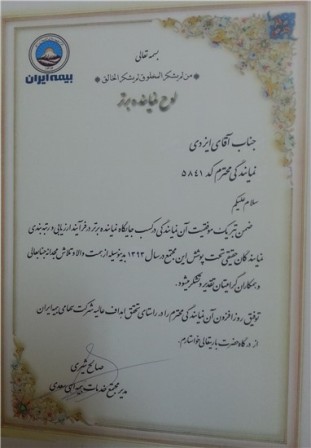 بسمه تعالی
من لم یشکر المخلوق لم یشکر الخالق
بیمه ایران
لوح نماینده برتر
جناب آقای ایزدی
نمایندگی محترم کد ۵۸۴۱
سلام علیکم
ضمن تبریک موفقیت آن نمایندگی در کسب جایگاه نماینده برتر در فرآیند ارزیابی و رتبه بندی
نمایندگان حقیقی تحت پوشش این مجتمع در سال ۱۳۹۲ بدینوسیله از همت والا و تلاش مجدانه جنابعالی
و همکاران گرامیتان تقدیر و تشکر میشود.
توفیق روز افزون آن نمایندگی محترم را در راستای تحقق اهداف عالیه شرکت سهامی بیمه ایران
از درگاه حضرت باریتعالی خواستارم.
مدیر مجتمع خدمات بیمه ای سعدی